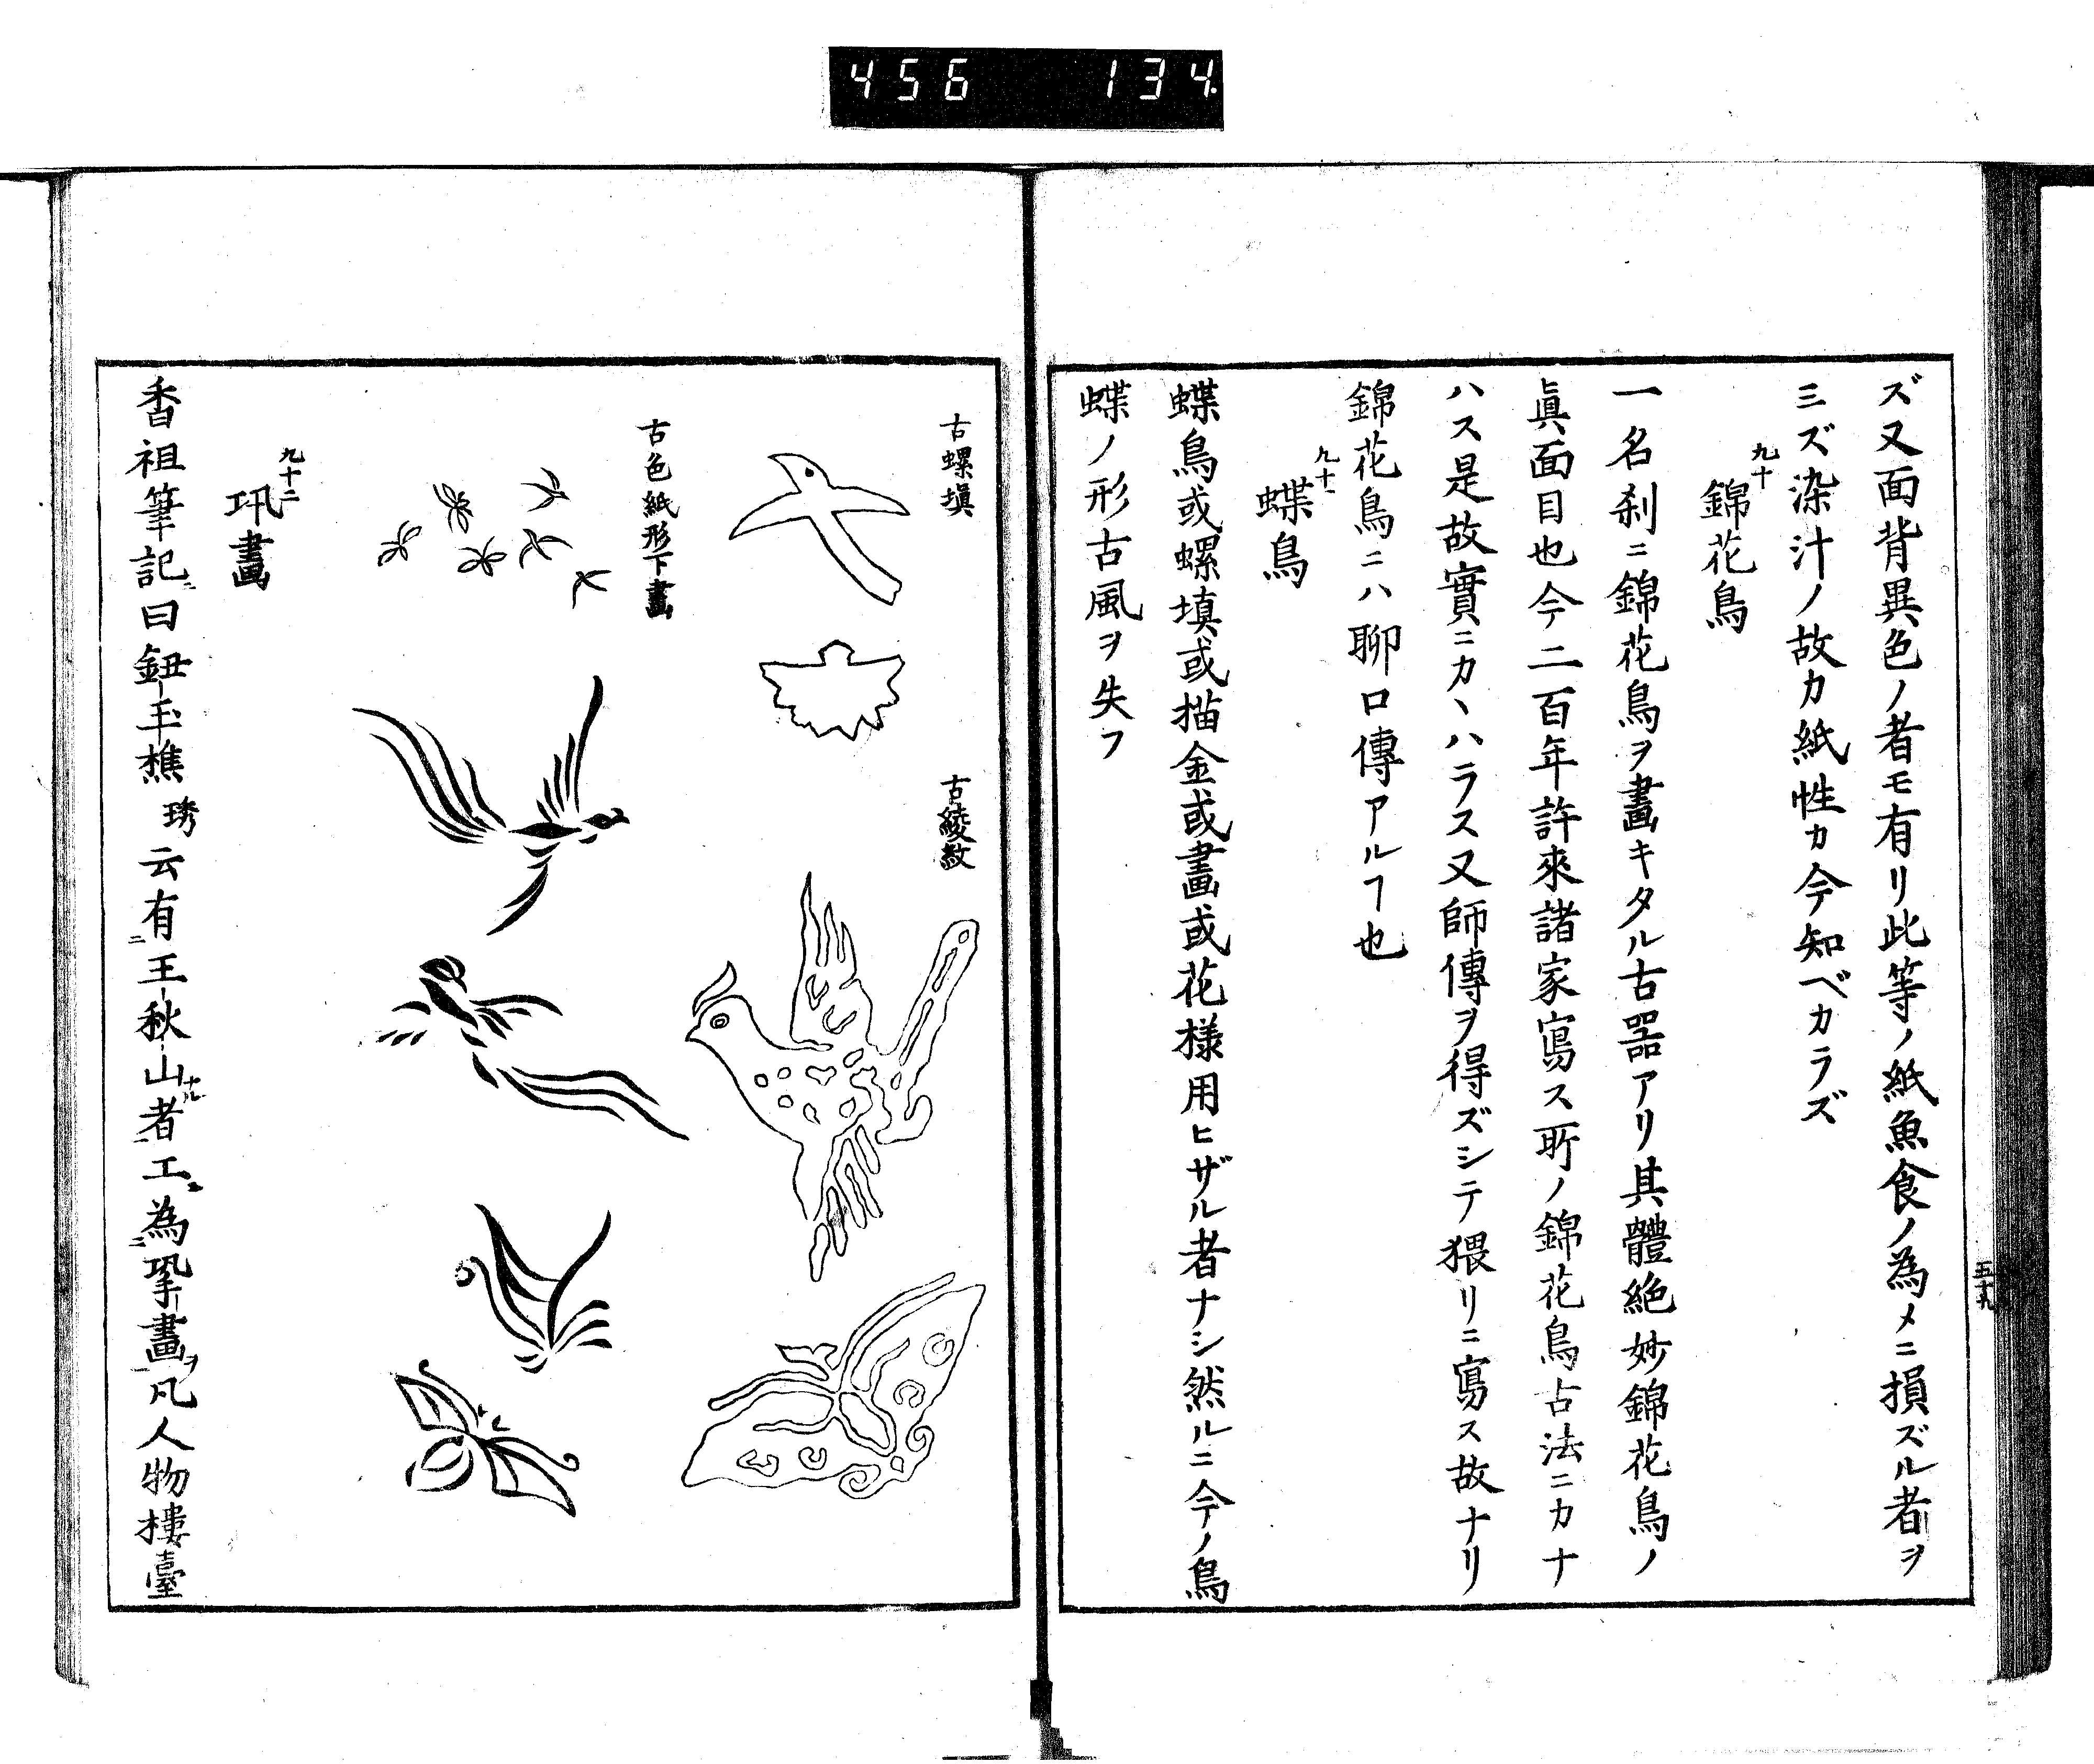 456 134
ズ又面背異色ノ者モ有リ此等ノ紙魚食ノ為メニ損ズル者ヲ
三ズ染汁ノ故カ紙性カ今知ベカラズ
九十
錦花鳥
一名刹ニ錦花鳥ヲ畫キタル古器アリ其體絶妙錦花鳥ノ
眞面目也今二百年許來諸家寫ス所ノ錦花鳥古法ニカナ
ハス是故實ニカヽハラス又師傳ヲ得ズシテ猥リニ寫ス故ナリ
錦花鳥ニハ聊口傳アルヿ也
九十一
蝶鳥
蝶鳥或螺填或描金或畫或花様用ヒザル者ナシ然ルニ今ノ鳥
蝶ノ形古風ヲ失フ
五十九
古螺塡
古綾紋
古色紙形下畫
九十二
巩畫
香祖筆記ニ曰鈕玉樵琇云有二王秋山ナル者一工ニ為二鞏畫一ヲ凡人物樓臺